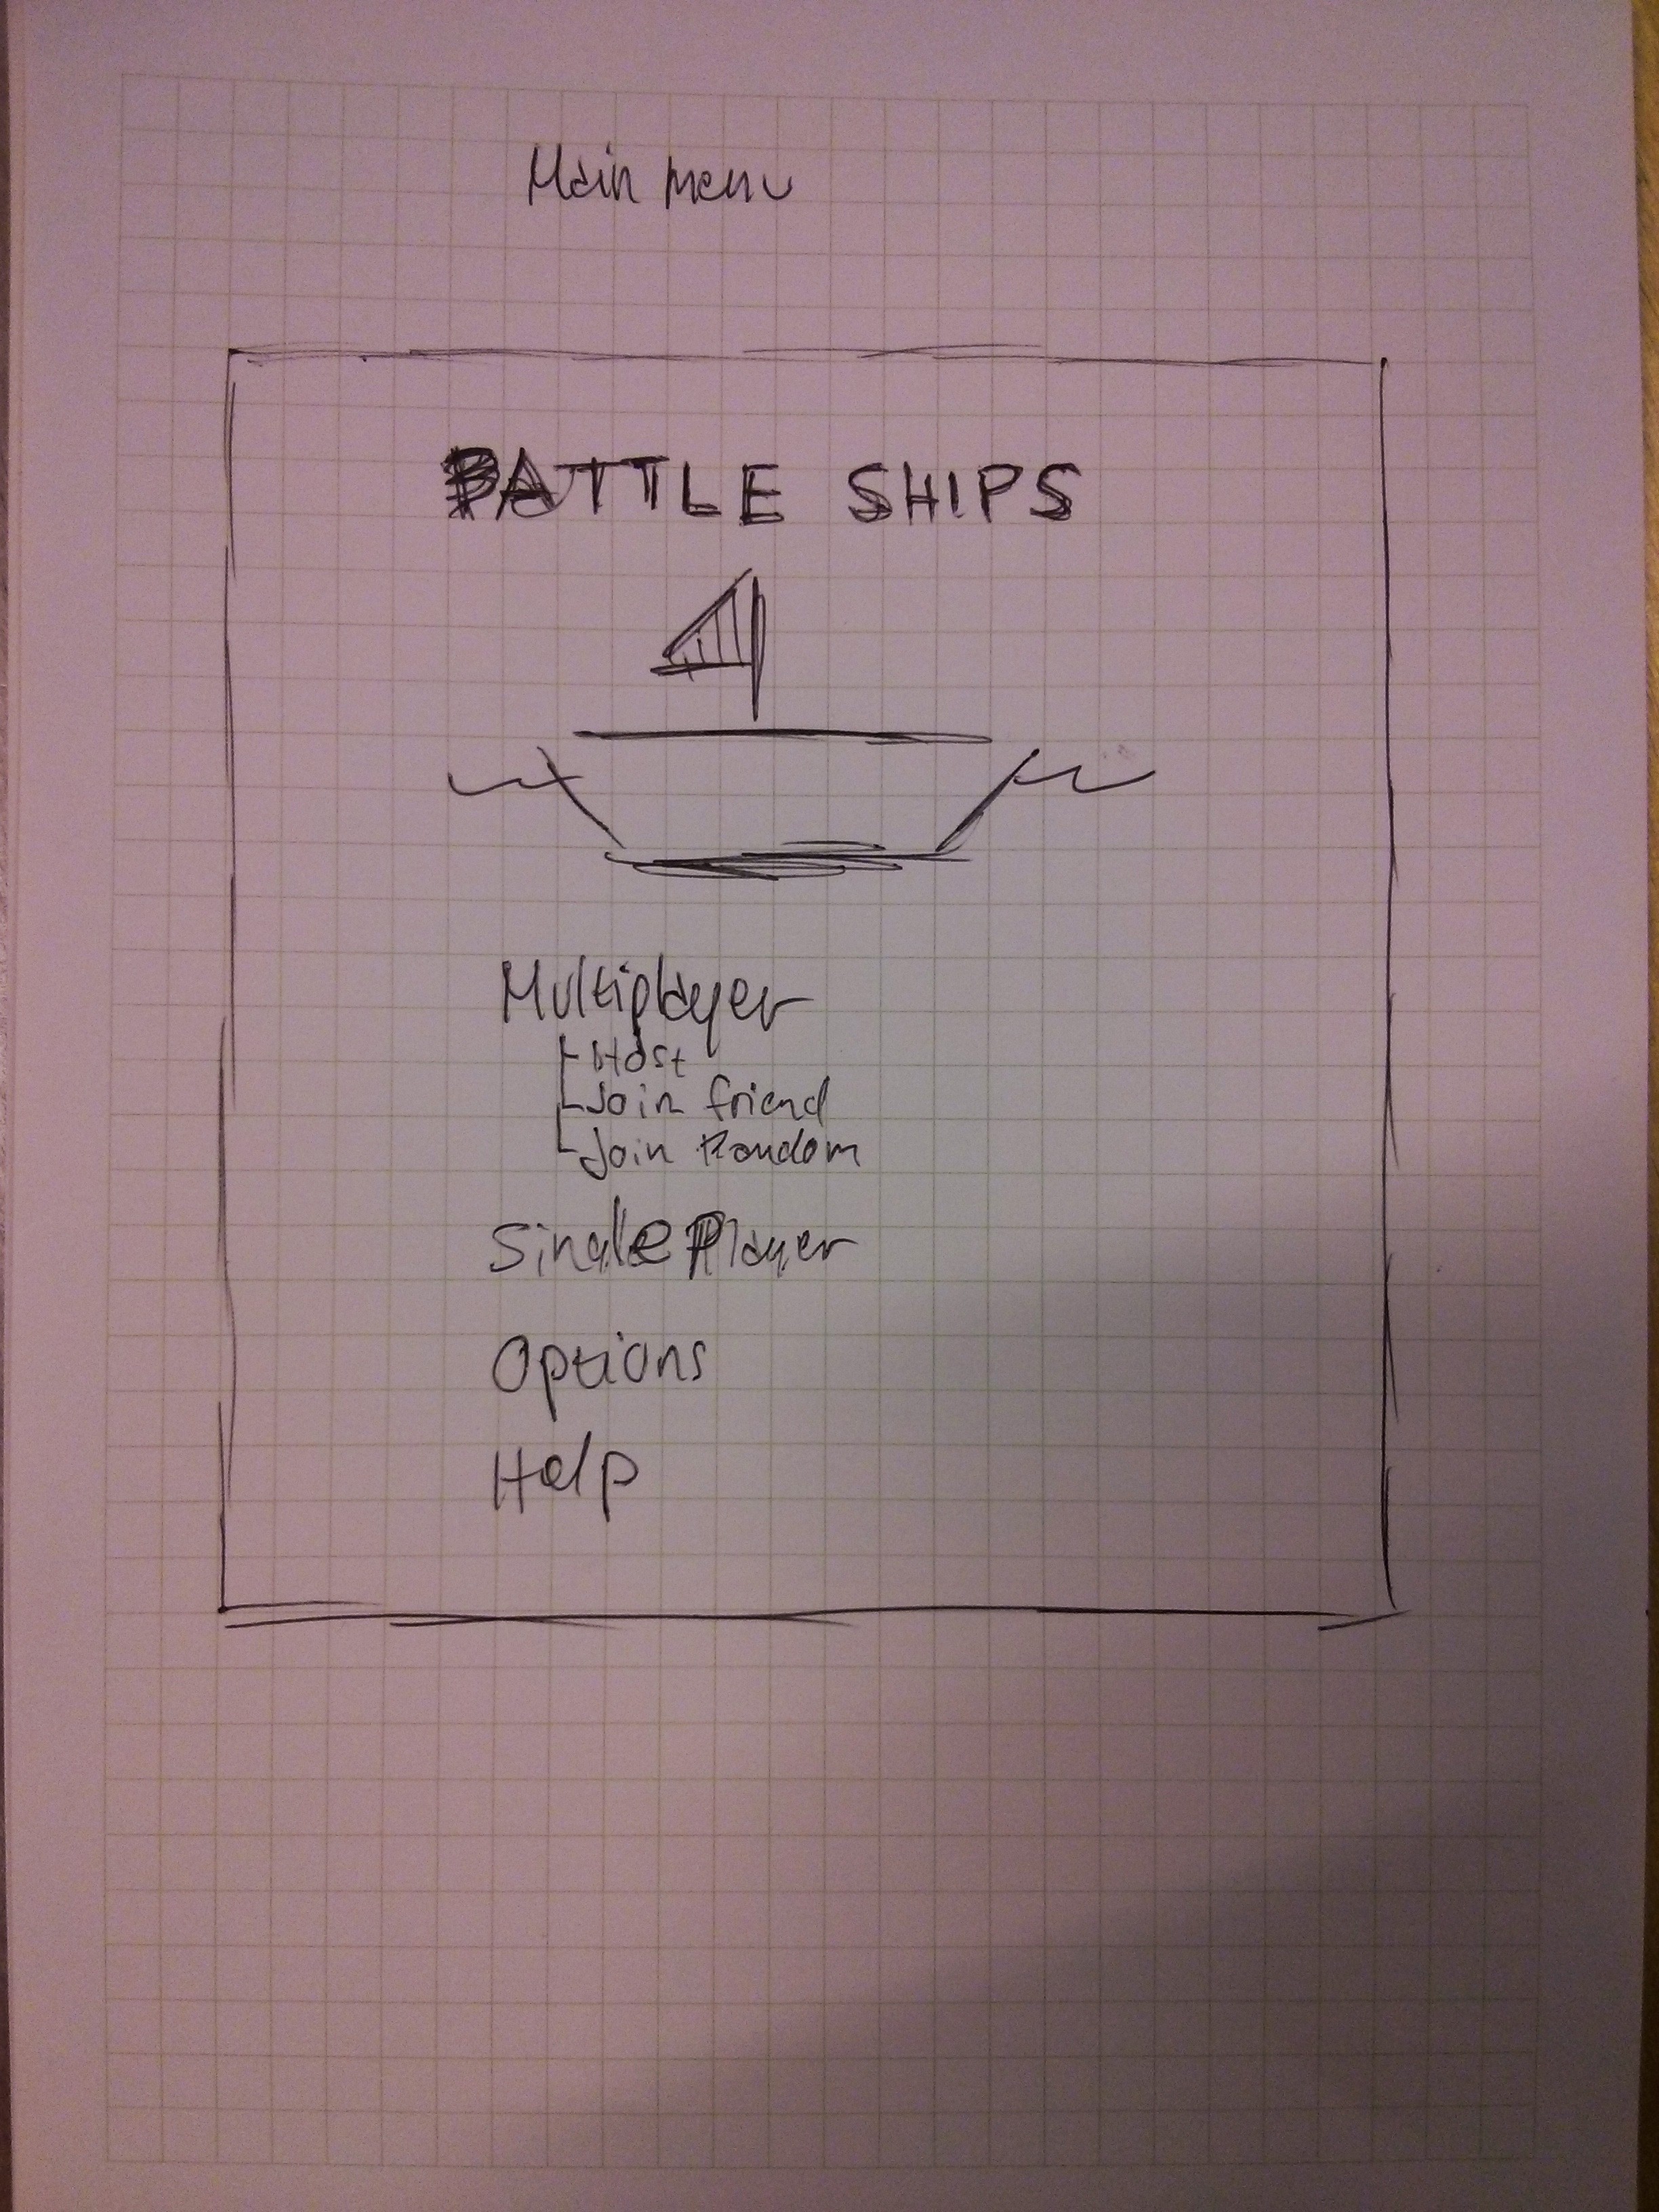 Main menu
BATTLE SHIPS
Multiplayer
Host
Join friend
Join Random
Single Player
Options
Help